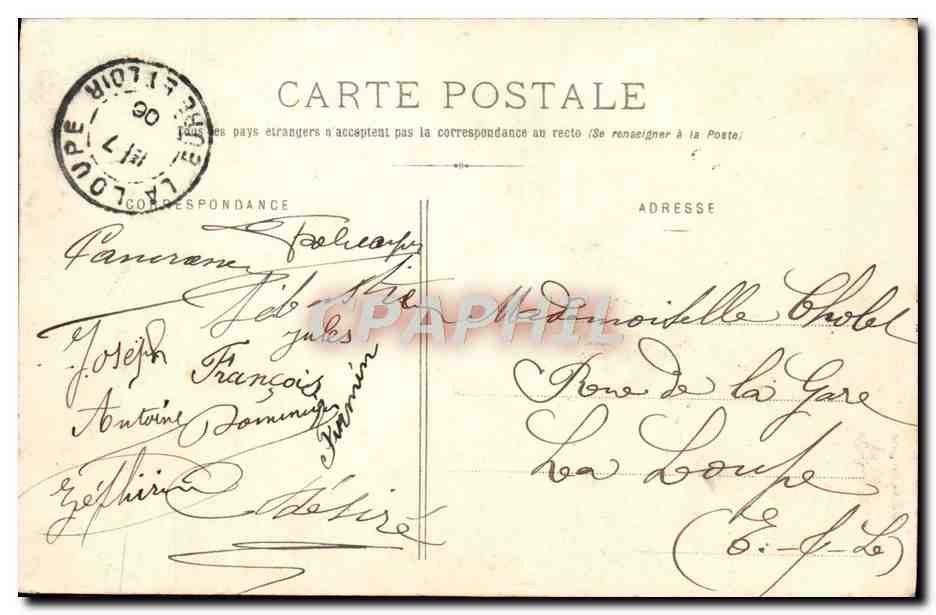 CARTE POSTALE
Tous les pays étrangers n'acceptent pas la correspondance au recto (Se renseigner à la Poste)
LA LOUPE
EURE ET LOIR
7
06
CORRESPONDANCE
Policarpe
Sébastien
Jules
Joseph
François
Firmin
Antoine
Dominique
Zéphirin
Désiré
CPAPHIL
ADRESSE
Mademoiselle Cholet
Rue de la Gare
La Loupe
(E.-&-L.)